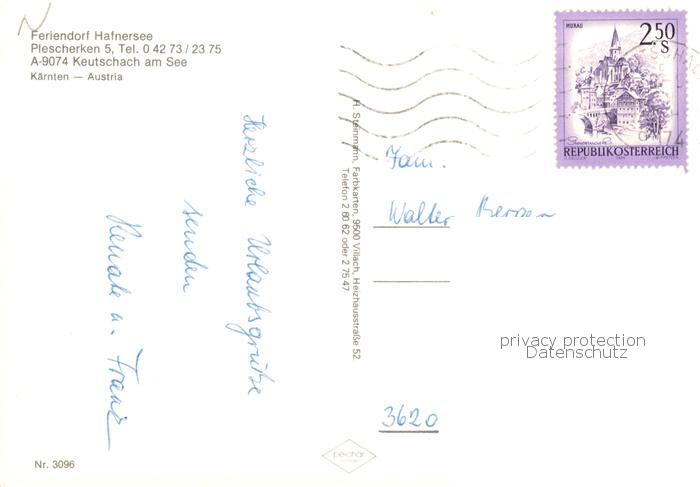 Feriendorf Hafnersee
Plescherken 5, Tel. 0 42 73 / 23 75
A-9074 Keutschach am See
Kärnten — Austria
Herzliche Urlaubsgrüße
senden
Renate u. Franz
Nr. 3096
H. Steinmann, Farbkarten, 9500 Villach, Heizhausstraße 52
Telefon 2 60 62 oder 2 75 47
MURAU
2.50
S
REPUBLIK ÖSTERREICH
Fam.
Walter
privacy protection
Datenschutz
3620